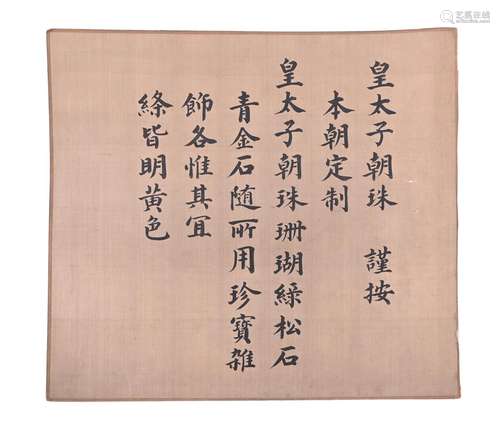 皇太子朝珠　謹按
本朝定制
皇太子朝珠珊瑚綠松石
青金石随所用珍寶雜
飾各惟其宜
絛皆明黃色
艺狐在线